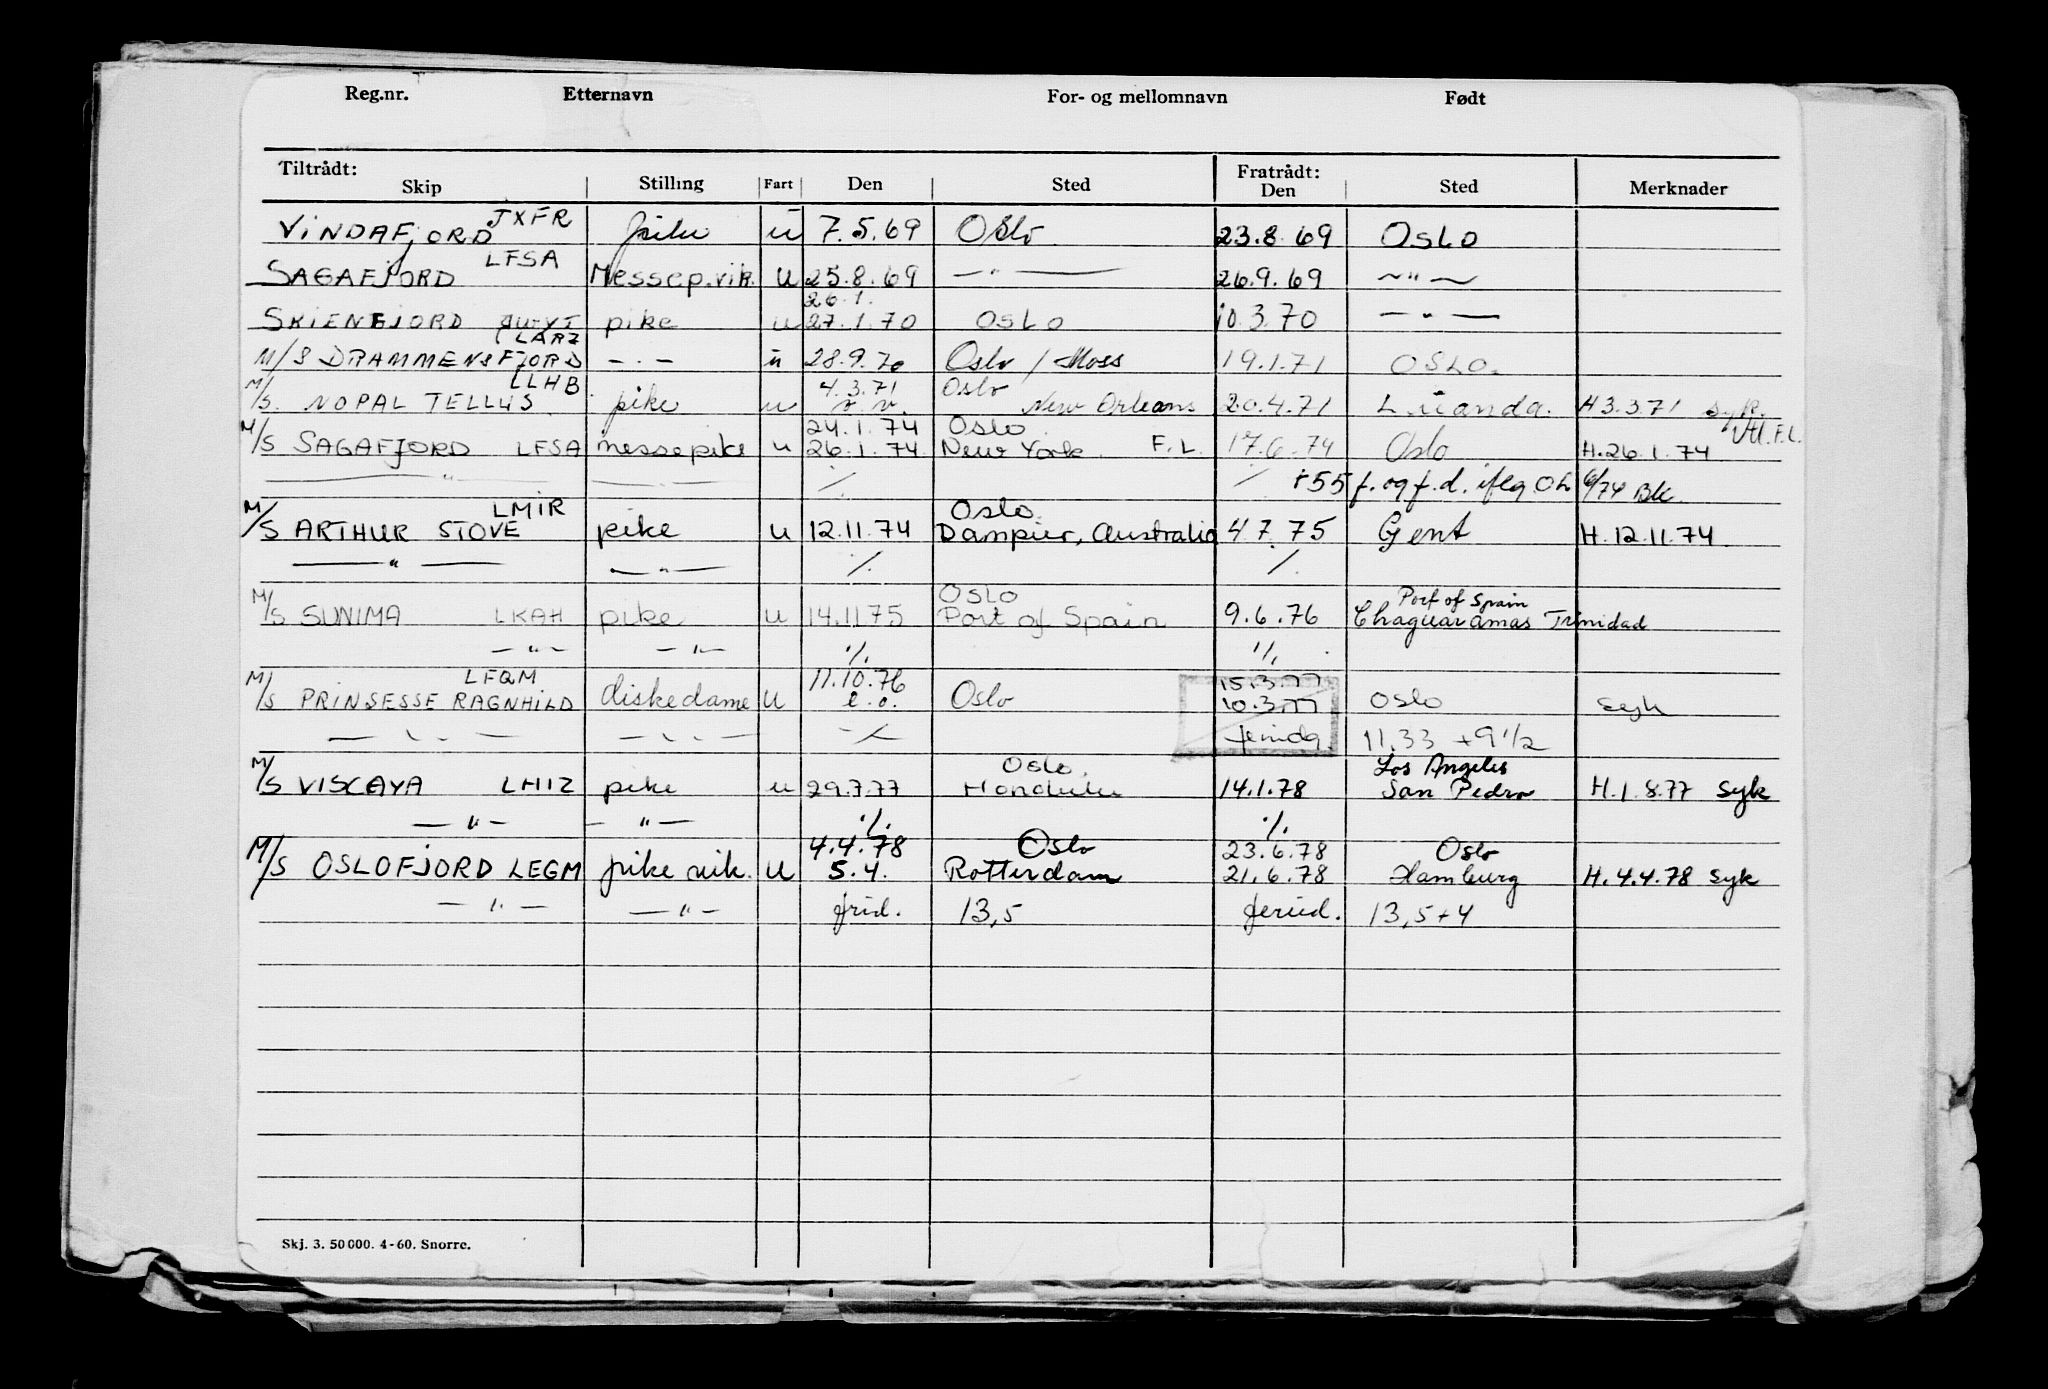 Reg.nr. Etternavn For- og mellomnavn Født
Tiltrådt: Fratrådt:
Skip Stilling Fart Den Sted Den Sted Merknader
VINDAFJORD JXFR pike u 7.5.69 Oslo 23.8.69 OSLO
LFSA
SAGAFJORD Messep.vik. u 25.8.69 — " — 26.9.69 — " —
26.1.
SKIENFJORD pike u 27.1.70 OSLO 10.3.70 — " —
LARZ
M/S DRAMMENSFJORD — . — u 28.9.70 Oslo / Moss 19.1.71 OSLO.
LLHB 4.3.71 Oslo
M/S. NOPAL TELLUS. pike u New Orleans 20.4.71 Luanda. H 3.3.71 Syk.
24.1.74 Oslo Utl. F.L.
M/S SAGAFJORD LFSA messepike u 26.1.74 New York F.L. 17.6.74 Oslo H.26.1.74
— " — — . — ./. ./. +55 f. og f.d. 6/74 Bk.
LMIR Oslo.
M/S ARTHUR STOVE pike u 12.11.74 Dampier, Australia 4.7.75 Gent H.12.11.74
— " — — " — ./. ./.
OSLO Port of Spain
M/S SUNIMA LKAH pike u 14.11.75 Port of Spain 9.6.76 Chaguaramas Trinidad
— " — — " — ./. ./.
LFQM 11.10.76 15.3.77
M/S PRINSESSE RAGNHILD diskedame U Oslo 10.3.77 Oslo syk
— " — — " — ./. 11.33 +9 1/2
Oslo. Los Angeles
M/S VISCAYA LHIZ pike u 29.7.77 Honolulu 14.1.78 San Pedro H.1.8.77 Syk
— " — — " — ./. ./.
4.4.78 Oslo 23.6.78 Oslo
M/S OSLOFJORD LEGM pike vik. U 5.4. Rotterdam 21.6.78 Hamburg H.4.4.78 Syk
— " — — " — 13,5 13,5+4
Skj. 3. 50000. 4-60. Snorre.